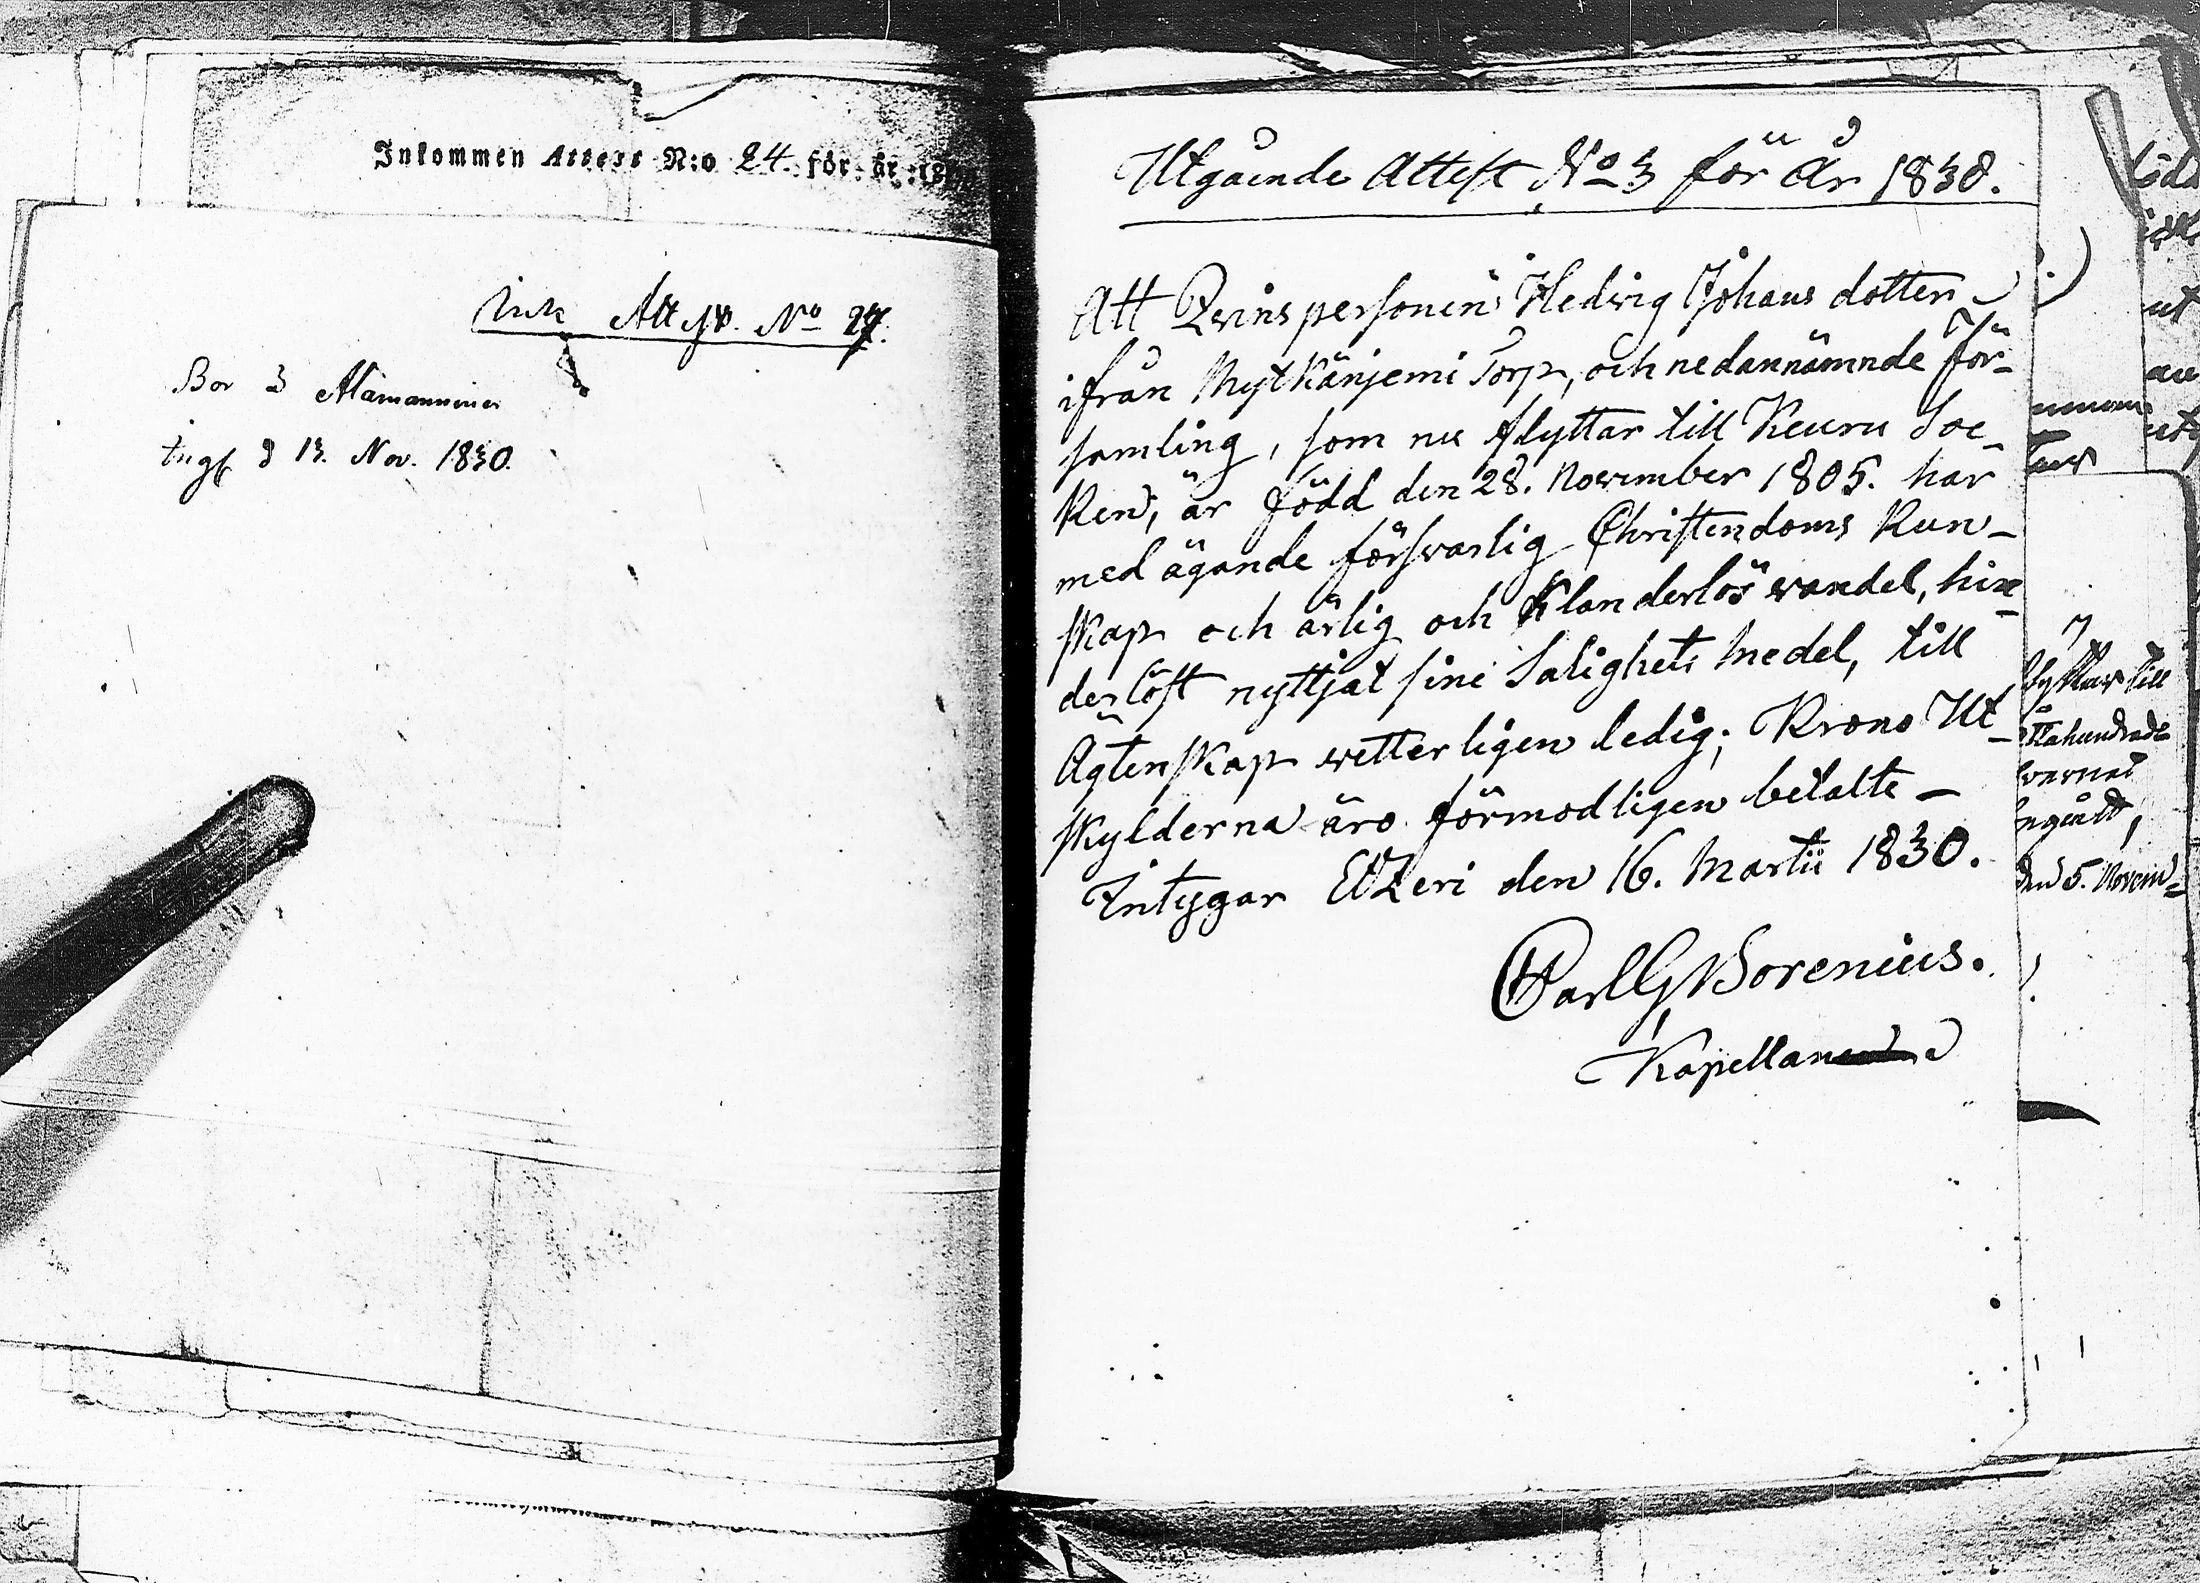 Inkommen Attest N:o 24. för år 18
Ink Att N:o 27.
Bor
d 13. Nov. 1830.
Utgående Attest No 3 för år 1830.
Att Qvinspersonen Hedvig Johans dotter
ifrån Mytkänjemi Torp, och nedannämnde För-
samling, som nu flyttar till Keuru Soc-
ken, är född den 28. November 1805. har
med ägande försvarlig Christendoms Kun-
skap och ärlig och Klanderlös vandel, hin-
derlöst nyttjat sine Salighets medel, till
Ägtenskap wetterligen ledig; Krono Ut-
skylderna äro förmodligen betalte –
Intygar Etzeri den 16. Martii 1830.
Carl G Borenius.
Kapellan
flyttar till
den 5. Novem-